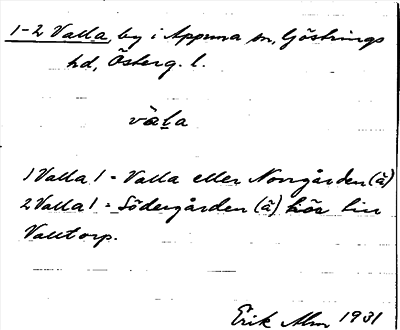 1-2 Valla, by i Appuna sn, Göstrings
hd, Österg. l.
väḷa
1 Valla 1 = Valla eller Norrgården (ä)
2 Valla 1 = Södergården (ä) hör till
Valltorp.
Erik Alm 1931